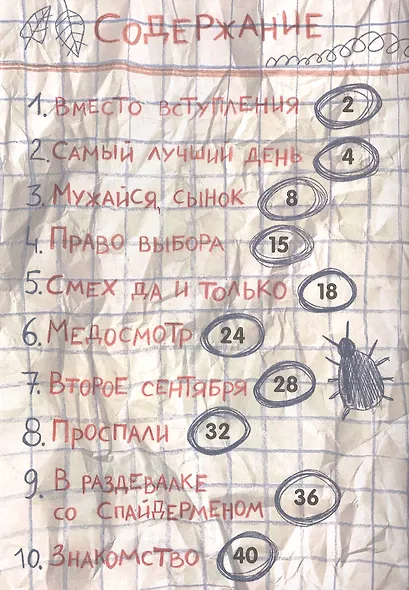 СОДЕРЖАНИЕ
1. ВМЕСТО ВСТУПЛЕНИЯ 2
2. САМЫЙ ЛУЧШИЙ ДЕНЬ 4
3. МУЖАЙСЯ, СЫНОК 8
4. ПРАВО ВЫБОРА 15
5. СМЕХ ДА И ТОЛЬКО 18
6. МЕДОСМОТР 24
7. ВТОРОЕ СЕНТЯБРЯ 28
8. ПРОСПАЛИ 32
9. В РАЗДЕВАЛКЕ
СО СПАЙДЕРМЕНОМ 36
10. ЗНАКОМСТВО 40